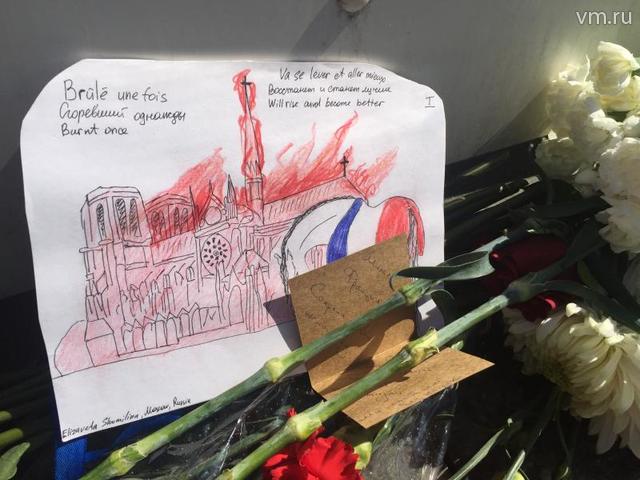 vm.ru
Brûlé une fois
Сгоревший однажды
Burnt once
Va se lever et aller mieux
Восстанет и станет лучше
Will rise and become better
I
Elizaveta Shumilina, Moscow, Russia